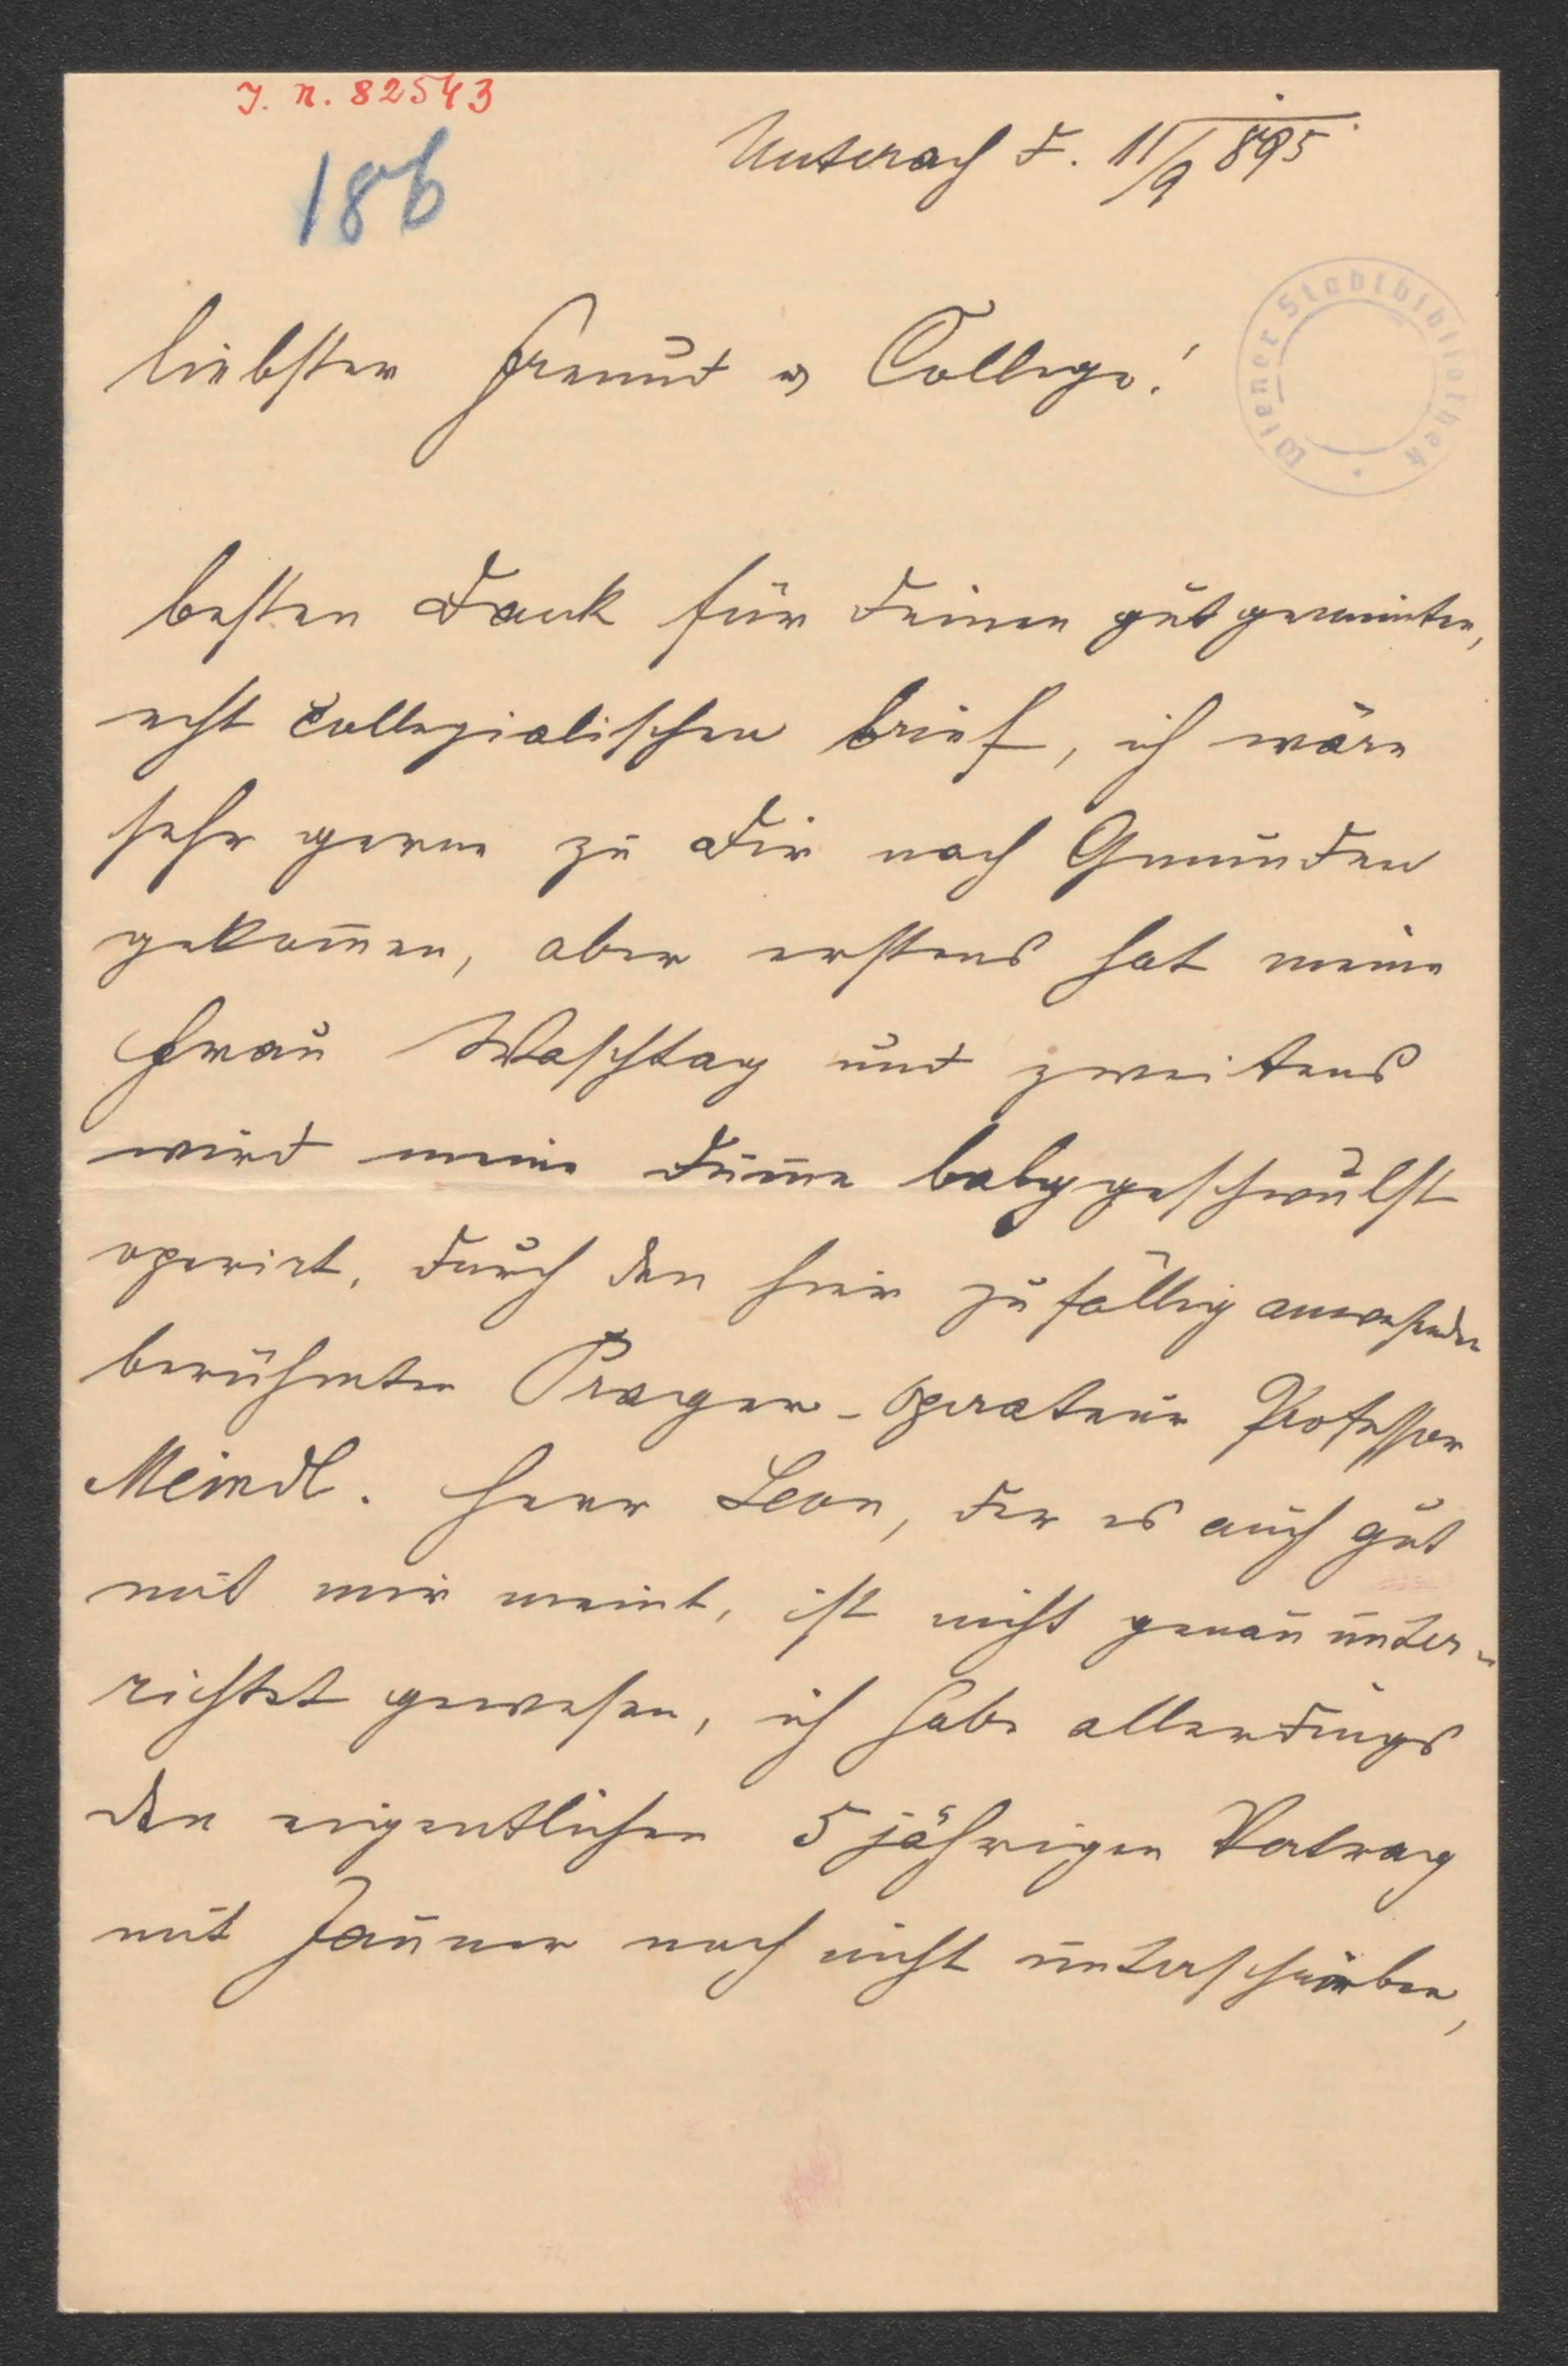 J. N. 82543
186
Unterach d. 11/9 895
Wiener Stadtbibliothek
liebster Freund u College!
besten Dank für Deinen gut gemeinten,
echt collegialischen brief, ich wäre
sehr gerne zu Dir nach Gmunden
gekom̅en, aber erstens hat meine
Frau Waschtag und zweitens
wird meine dum̅e balggeschwulst
operirt, durch den hier zufällig anwesenden
berühmten Prager-Operateur Professor
Meindl. Herr Leon, der es auch gut
mit mir meint, ist nicht genau unter-
richtet gewesen, ich habe allerdings
den eigentlichen 5 jährigen Vertrag
mit Jauner noch nicht unterschrieben,